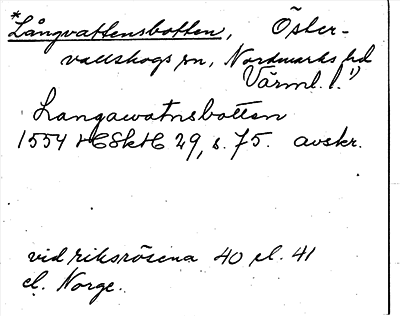 *Långvattensbotten, Öster-
vallskogs sn, Nordmarks hd
Värml. l. 1)
Langawatnsbotten
1554 HSH 29, s. 75. avskr.
vid riksrösena 40 el. 41
el. Norge.